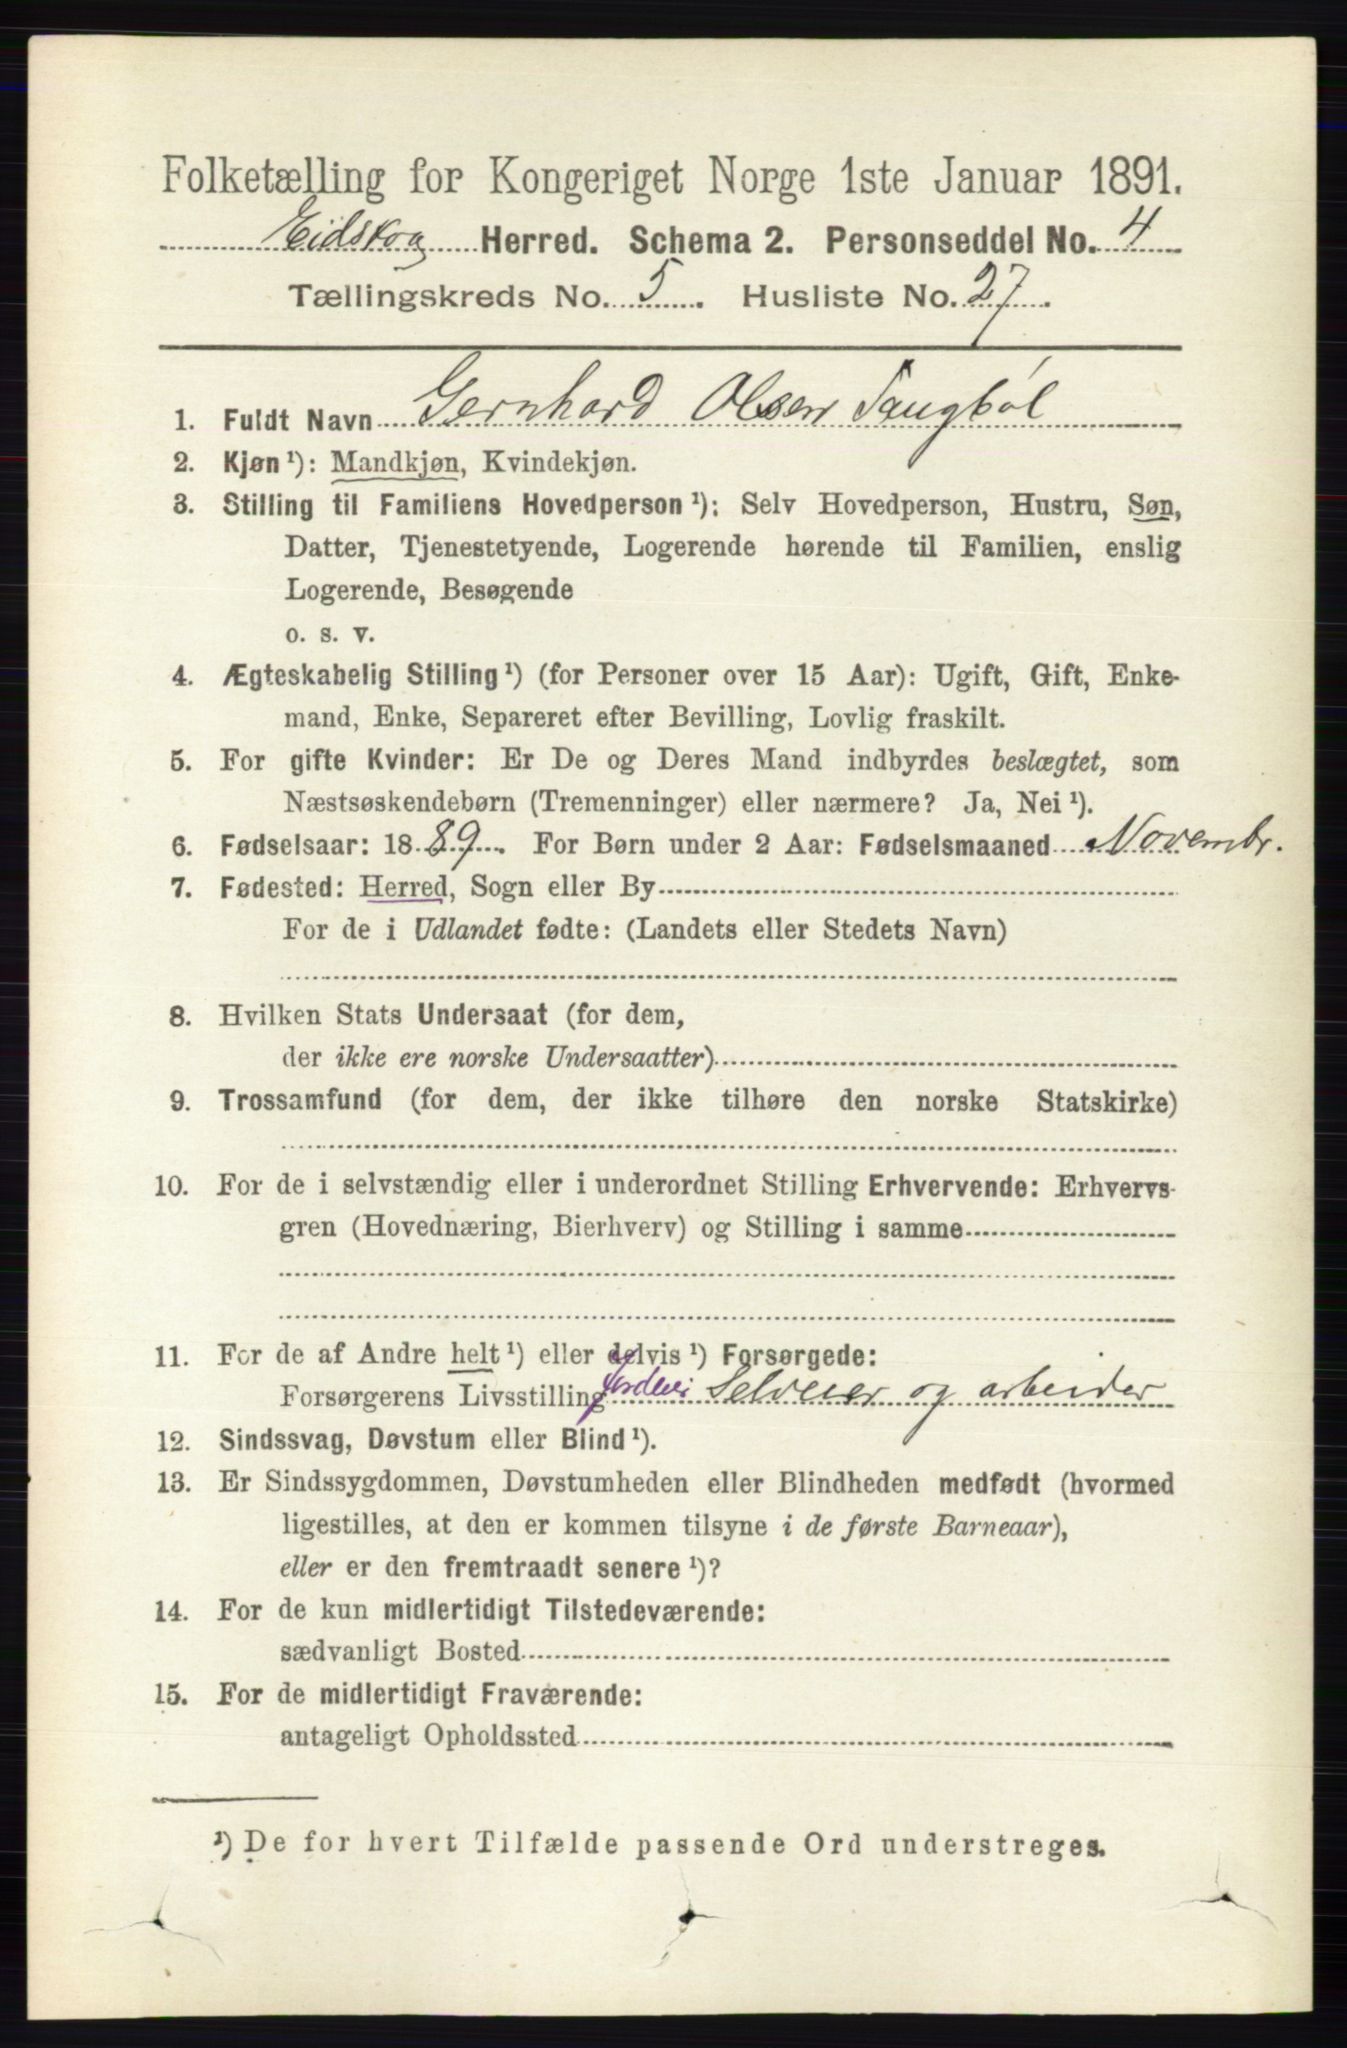 Folketælling for Kongeriget Norge 1ste Januar 1891.
Eidskog Herred. Schema 2. Personseddel No. 4
Tællingskreds No. 5. Husliste No. 27.
1. Fuldt Navn Gernhard Olsen Tangbøl
2. Kjøn¹): Mandkjøn, Kvindekjøn.
3. Stilling til Familiens Hovedperson¹): Selv Hovedperson, Hustru, Søn,
Datter, Tjenestetyende, Logerende hørende til Familien, enslig
Logerende, Besøgende
o. s. v.
4. Ægteskabelig Stilling¹) (for Personer over 15 Aar): Ugift, Gift, Enke-
mand, Enke, Separeret efter Bevilling, Lovlig fraskilt.
5. For gifte Kvinder: Er De og Deres Mand indbyrdes beslægtet, som
Næstsøskendebørn (Tremenninger) eller nærmere? Ja, Nei¹).
6. Fødselsaar: 1889. For Børn under 2 Aar: Fødselsmaaned Novembr.
7. Fødested: Herred, Sogn eller By
For de i Udlandet fødte: (Landets eller Stedets Navn)
8. Hvilken Stats Undersaat (for dem,
der ikke ere norske Undersaatter)
9. Trossamfund (for dem, der ikke tilhøre den norske Statskirke)
10. For de i selvstændig eller i underordnet Stilling Erhvervende: Erhvervs-
gren (Hovednæring, Bierhverv) og Stilling i samme
11. For de af Andre helt¹) eller delvis¹) Forsørgede:
Forsørgerens Livsstilling Selveier og arbeider
12. Sindssvag, Døvstum eller Blind¹).
13. Er Sindssygdommen, Døvstumheden eller Blindheden medfødt (hvormed
ligestilles, at den er kommen tilsyne i de første Barneaar),
eller er den fremtraadt senere¹)?
14. For de kun midlertidigt Tilstedeværende:
sædvanligt Bosted
15. For de midlertidigt Fraværende:
antageligt Opholdssted
¹) De for hvert Tilfælde passende Ord understreges.